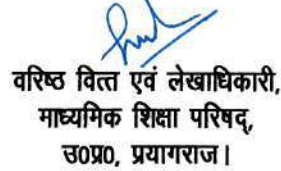 वरिष्ठ वित्त एवं लेखाधिकारी,
माध्यमिक शिक्षा परिषद्,
उ0प्र0, प्रयागराज।